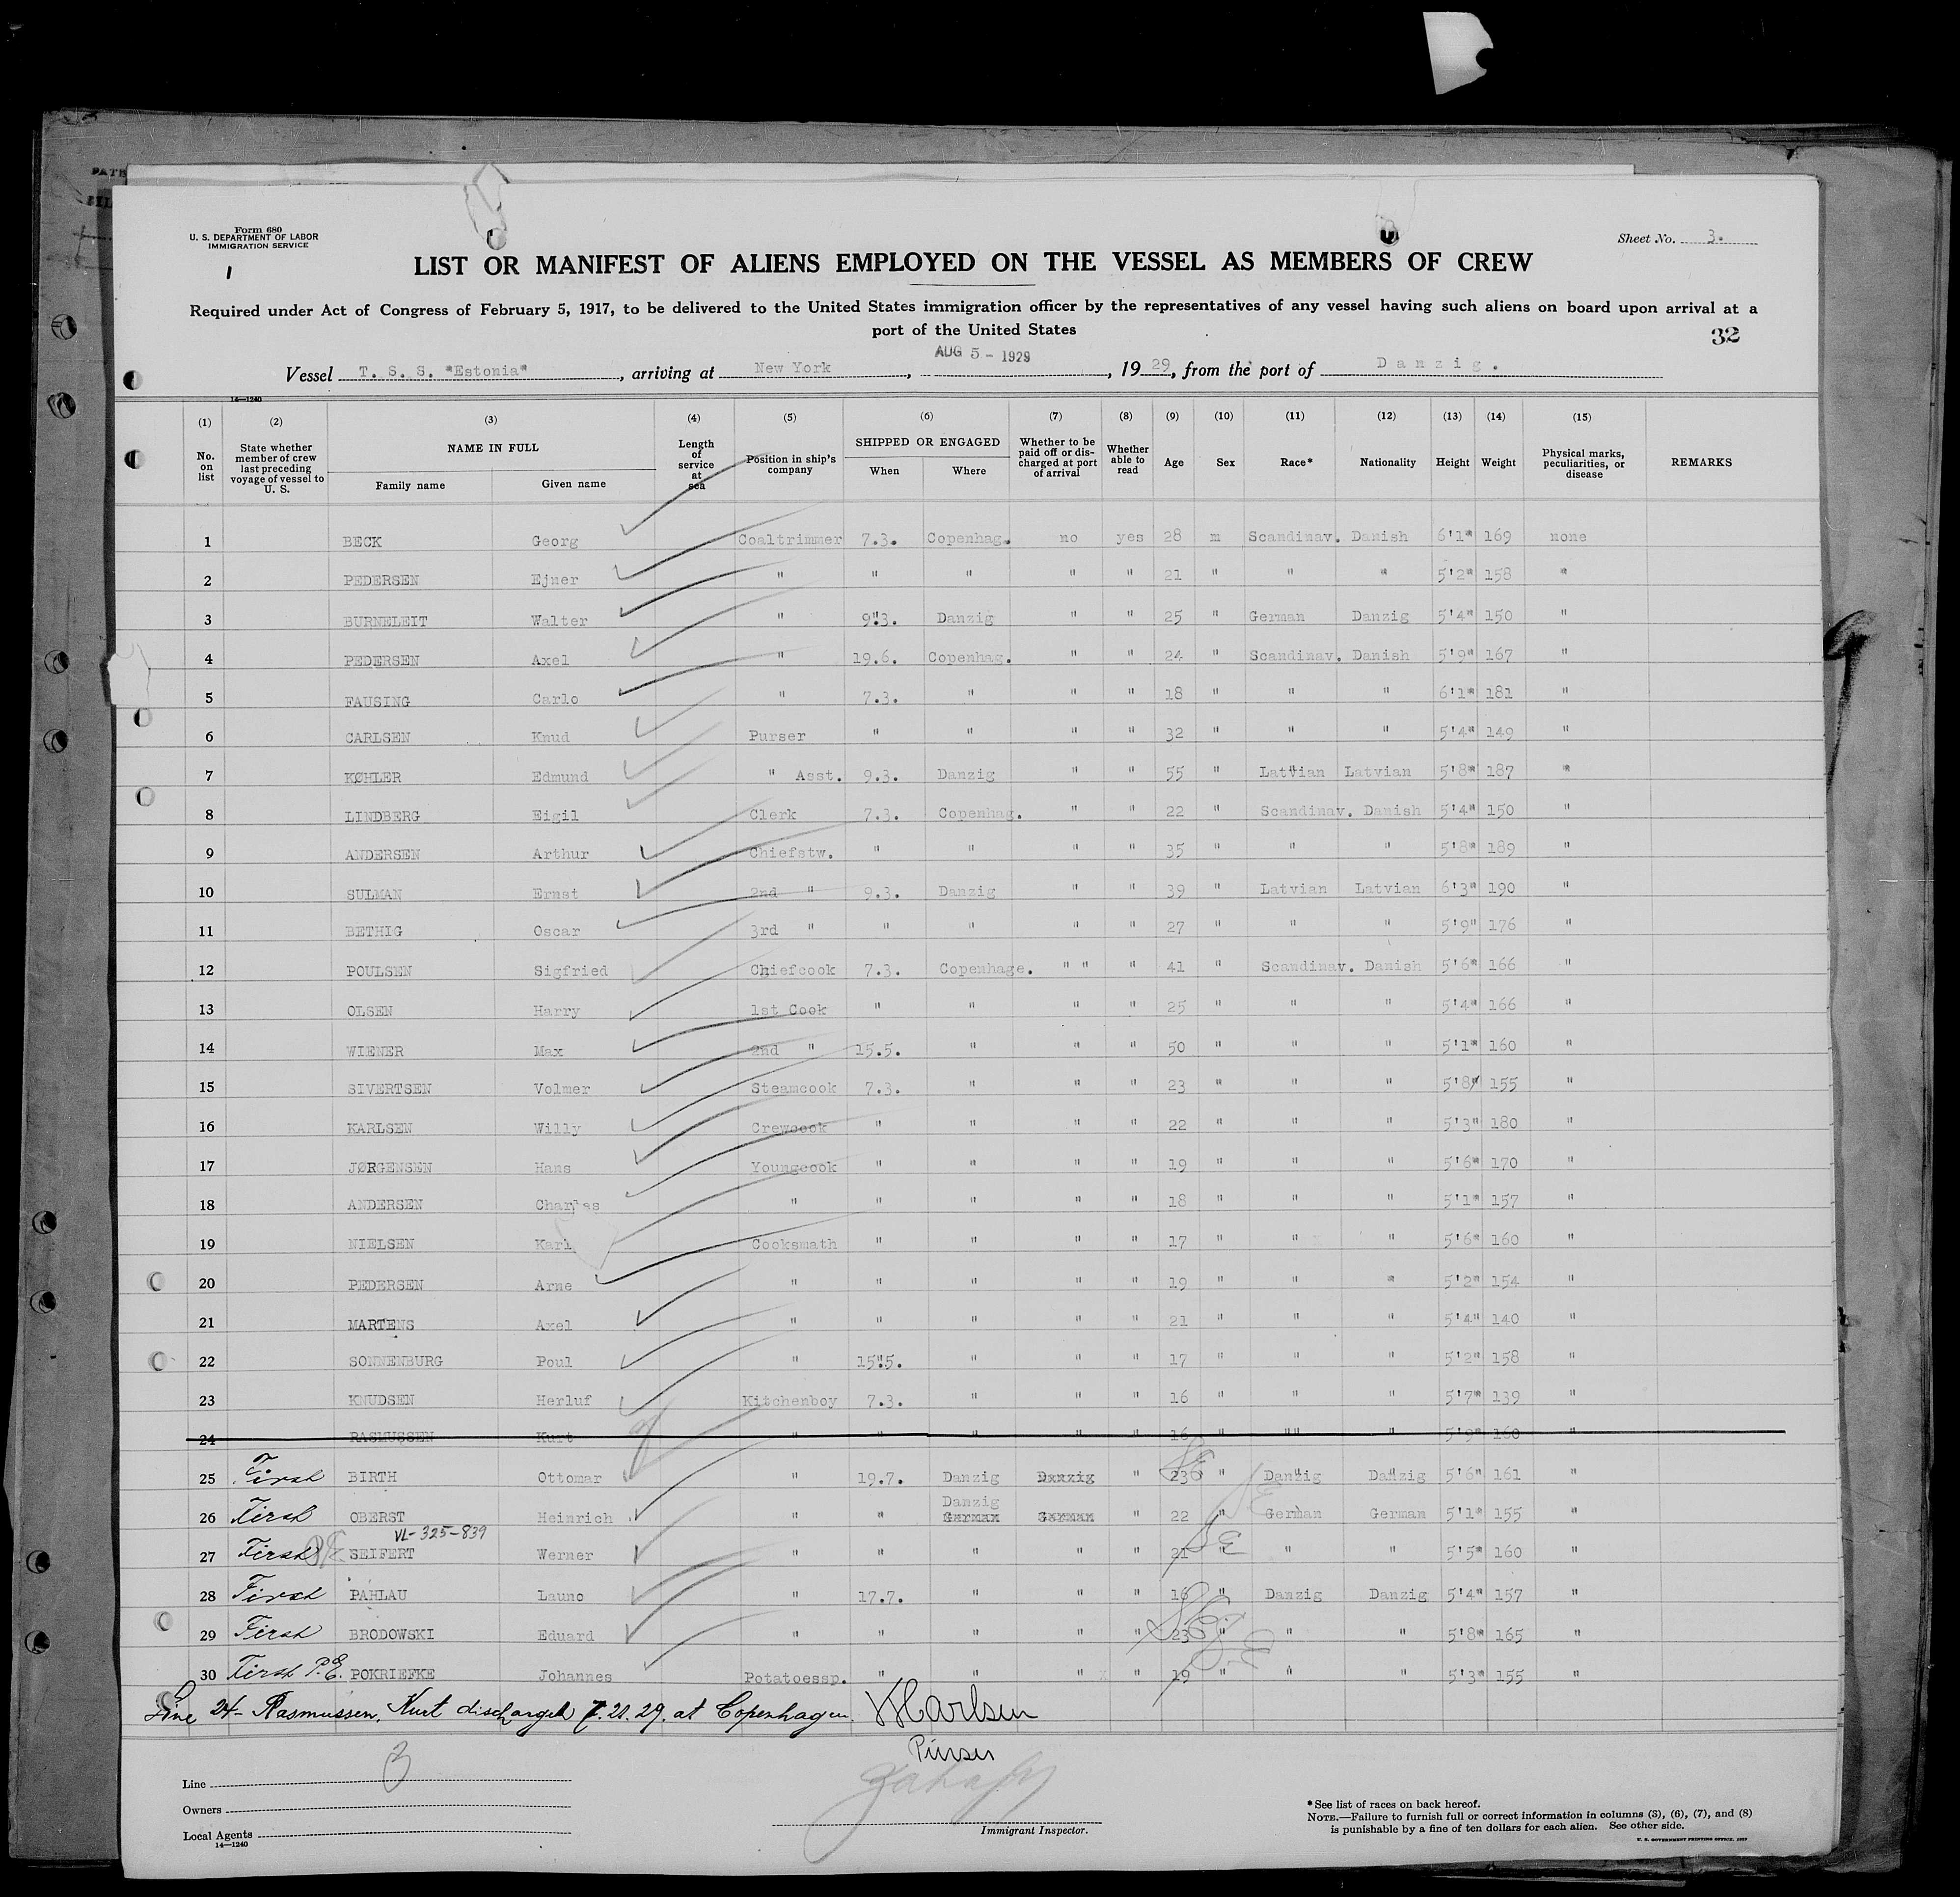 Form 680
U. S. DEPARTMENT OF LABOR
IMMIGRATION SERVICE
Sheet No. 3.
LIST OR MANIFEST OF ALIENS EMPLOYED ON THE VESSEL AS MEMBERS OF CREW
Required under Act of Congress of February 5, 1917, to be delivered to the United States immigration officer by the representatives of any vessel having such aliens on board upon arrival at a
port of the United States
32
Vessel T. S. S. "Estonia", arriving at New York, AUG 5 - 1929, 1929, from the port of Danzig.
14—1240
(1) No. on list (2) State whether member of crew last preceding voyage of vessel to U. S. (3) NAME IN FULL Family name Given name (4) Length of service at sea (5) Position in ship's company (6) SHIPPED OR ENGAGED When Where (7) Whether to be paid off or discharged at port of arrival (8) Whether able to read (9) Age (10) Sex (11) Race* (12) Nationality (13) Height (14) Weight (15) Physical marks, peculiarities, or disease REMARKS
1 BECK Georg Coaltrimmer 7.3. Copenhag. no yes 28 m Scandinav. Danish 6'1" 169 none
2 PEDERSEN Ejner " " " " " 21 " " " 5'2" 158 "
3 BURNELEIT Walter " 9.3. Danzig " " 25 " German Danzig 5'4" 150 "
4 PEDERSEN Axel " 19.6. Copenhag. " " 24 " Scandinav. Danish 5'9" 167 "
5 FAUSING Carlo " 7.3. " " " 18 " " " 6'1" 181 "
6 CARLSEN Knud Purser " " " " 32 " " " 5'4" 149 "
7 KØHLER Edmund " Asst. 9.3. Danzig " " 55 " Latvian Latvian 5'8" 187 "
8 LINDBERG Eigil Clerk 7.3. Copenhag. " " 22 " Scandinav. Danish 5'4" 150 "
9 ANDERSEN Arthur Chiefstw. " " " " 35 " " " 5'8" 189 "
10 SULMAN Ernst 2nd " 9.3. Danzig " " 39 " Latvian Latvian 6'3" 190 "
11 BETHIG Oscar 3rd " " " " " 27 " " " 5'9" 176 "
12 POULSEN Sigfried Chiefcook 7.3. Copenhage. " " " 41 " Scandinav. Danish 5'6" 166 "
13 OLSEN Harry 1st Cook " " " " 25 " " " 5'4" 166 "
14 WIENER Max 2nd " 15.5. " " " 50 " " " 5'1" 160 "
15 SIVERTSEN Volmer Steamcook 7.3. " " " 23 " " " 5'8" 155 "
16 KARLSEN Willy Crewcook " " " " 22 " " " 5'3" 180 "
17 JØRGENSEN Hans Youngcook " " " " 19 " " " 5'6" 170 "
18 ANDERSEN " " " " " 18 " " " 5'1" 157 "
19 NIELSEN Karl Cooksmath " " " " 17 " " " 5'6" 160 "
20 PEDERSEN Arne " " " " " 19 " " " 5'2" 154 "
21 MARTENS Axel " " " " " 21 " " " 5'4" 140 "
22 SONNENBURG Poul " 15.5. " " " 17 " " " 5'2" 158 "
23 KNUDSEN Herluf Kitchenboy 7.3. " " " 16 " " " 5'7" 139 "
24 RASMUSSEN Kurt " " " " " 16 " " " 5'9" 160 "
25 First BIRTH Ottomar " 19.7. Danzig Danzig " 23 " Danzig Danzig 5'6" 161 "
26 First OBERST Heinrich " " Danzig German German " 22 " German German 5'1" 155 "
VL-325-839
27 First SEIFERT Werner " " " " " 21 " " " 5'5" 160 "
28 First PAHLAU Launo " 17.7. " " " 16 " Danzig Danzig 5'4" 157 "
29 First BRODOWSKI Eduard " " " " " 23 " " " 5'8" 165 "
30 First P.E. POKRIEFKE Johannes Potatoessp. " " " " 19 " " " 5'3" 155 "
Line 24- Rasmussen, Kurt discharged 7.20.29. at Copenhagen. KCarlsen
Purser
3
Line
Owners
Local Agents
14—1240
Immigrant Inspector.
*See list of races on back hereof.
NOTE.—Failure to furnish full or correct information in columns (3), (6), (7), and (8)
is punishable by a fine of ten dollars for each alien. See other side.
U. S. GOVERNMENT PRINTING OFFICE: 1929